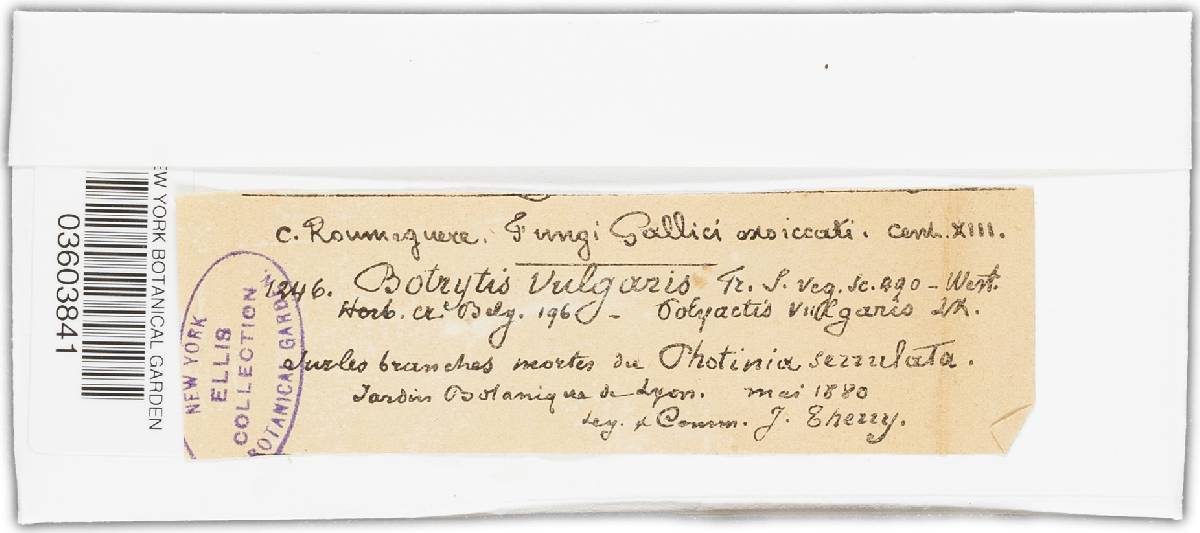 C. Roumeguere. Fungi Gallici exsiccati. Cent. XIII.
1246. Botrytis vulgaris Fr. S. veg. Sc. 490 - West.
Herb. cr. Belg. 196 - Polyactis vulgaris Lk.
Sur les branches mortes du Photinia serrulata.
Jardin Botanique de Lyon. mai 1880
leg. & Comm. J. Therry.
NEW YORK BOTANICAL GARDEN
ELLIS
COLLECTION
EW YORK BOTANICAL GARDEN
03603841